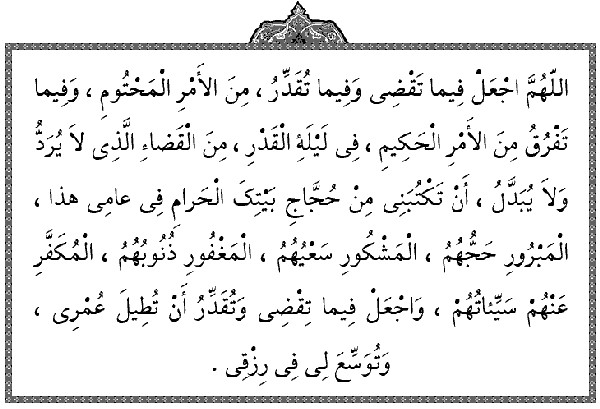 اللّهُمَّ اجْعَلْ فِيما تَقْضِى وَفِيما تُقَدِّرُ ، مِنَ الأَمْرِ الْمَحْتُومِ ، وَفِيما
تَفْرُقُ مِنَ الأَمْرِ الْحَكِيمِ ، فِى لَيْلَةِ الْقَدْرِ ، مِنَ الْقَضاءِ الَّذِى لاَ يُرَدُّ
وَلاَ يُبَدَّلُ ، أَنْ تَكْتُبَنِى مِنْ حُجَّاجِ بَيْتِکَ الْحَرامِ فِى عامِى هذا ،
الْمَبْرُورِ حَجُّهُمْ ، الْمَشْكُورِ سَعْيُهُمْ ، الْمَغْفُورِ ذُنُوبُهُمْ ، الْمُكَفَّرِ
عَنْهُمْ سَيِّئاتُهُمْ ، وَاجْعَلْ فِيما تَقْضِى وَتُقَدِّرُ أَنْ تُطِيلَ عُمْرِى ،
وَتُوَسِّعَ لِى فِى رِزْقِى .